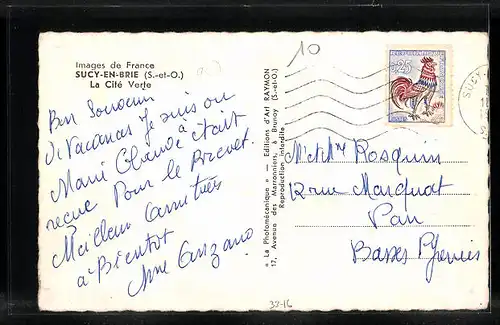 Images de France
SUCY-EN-BRIE (S.-et-O.)
La Cité Verte
10
Bon Souvenir
de Vacances Je suis ou
Marie Claude à était
reçue Pour le Brevet.
Meilleur Amitiés
à Bientot
« La Photomécanique » — Editions d'Art RAYMON
17, Avenue des Marronniers, à Brunoy (S.-et-O.)
Reproduction interdite
0,25
SUCY
Mr et Mme Rosquin
12 rue Marquat
Pau
Basses Pyrénées
32-16